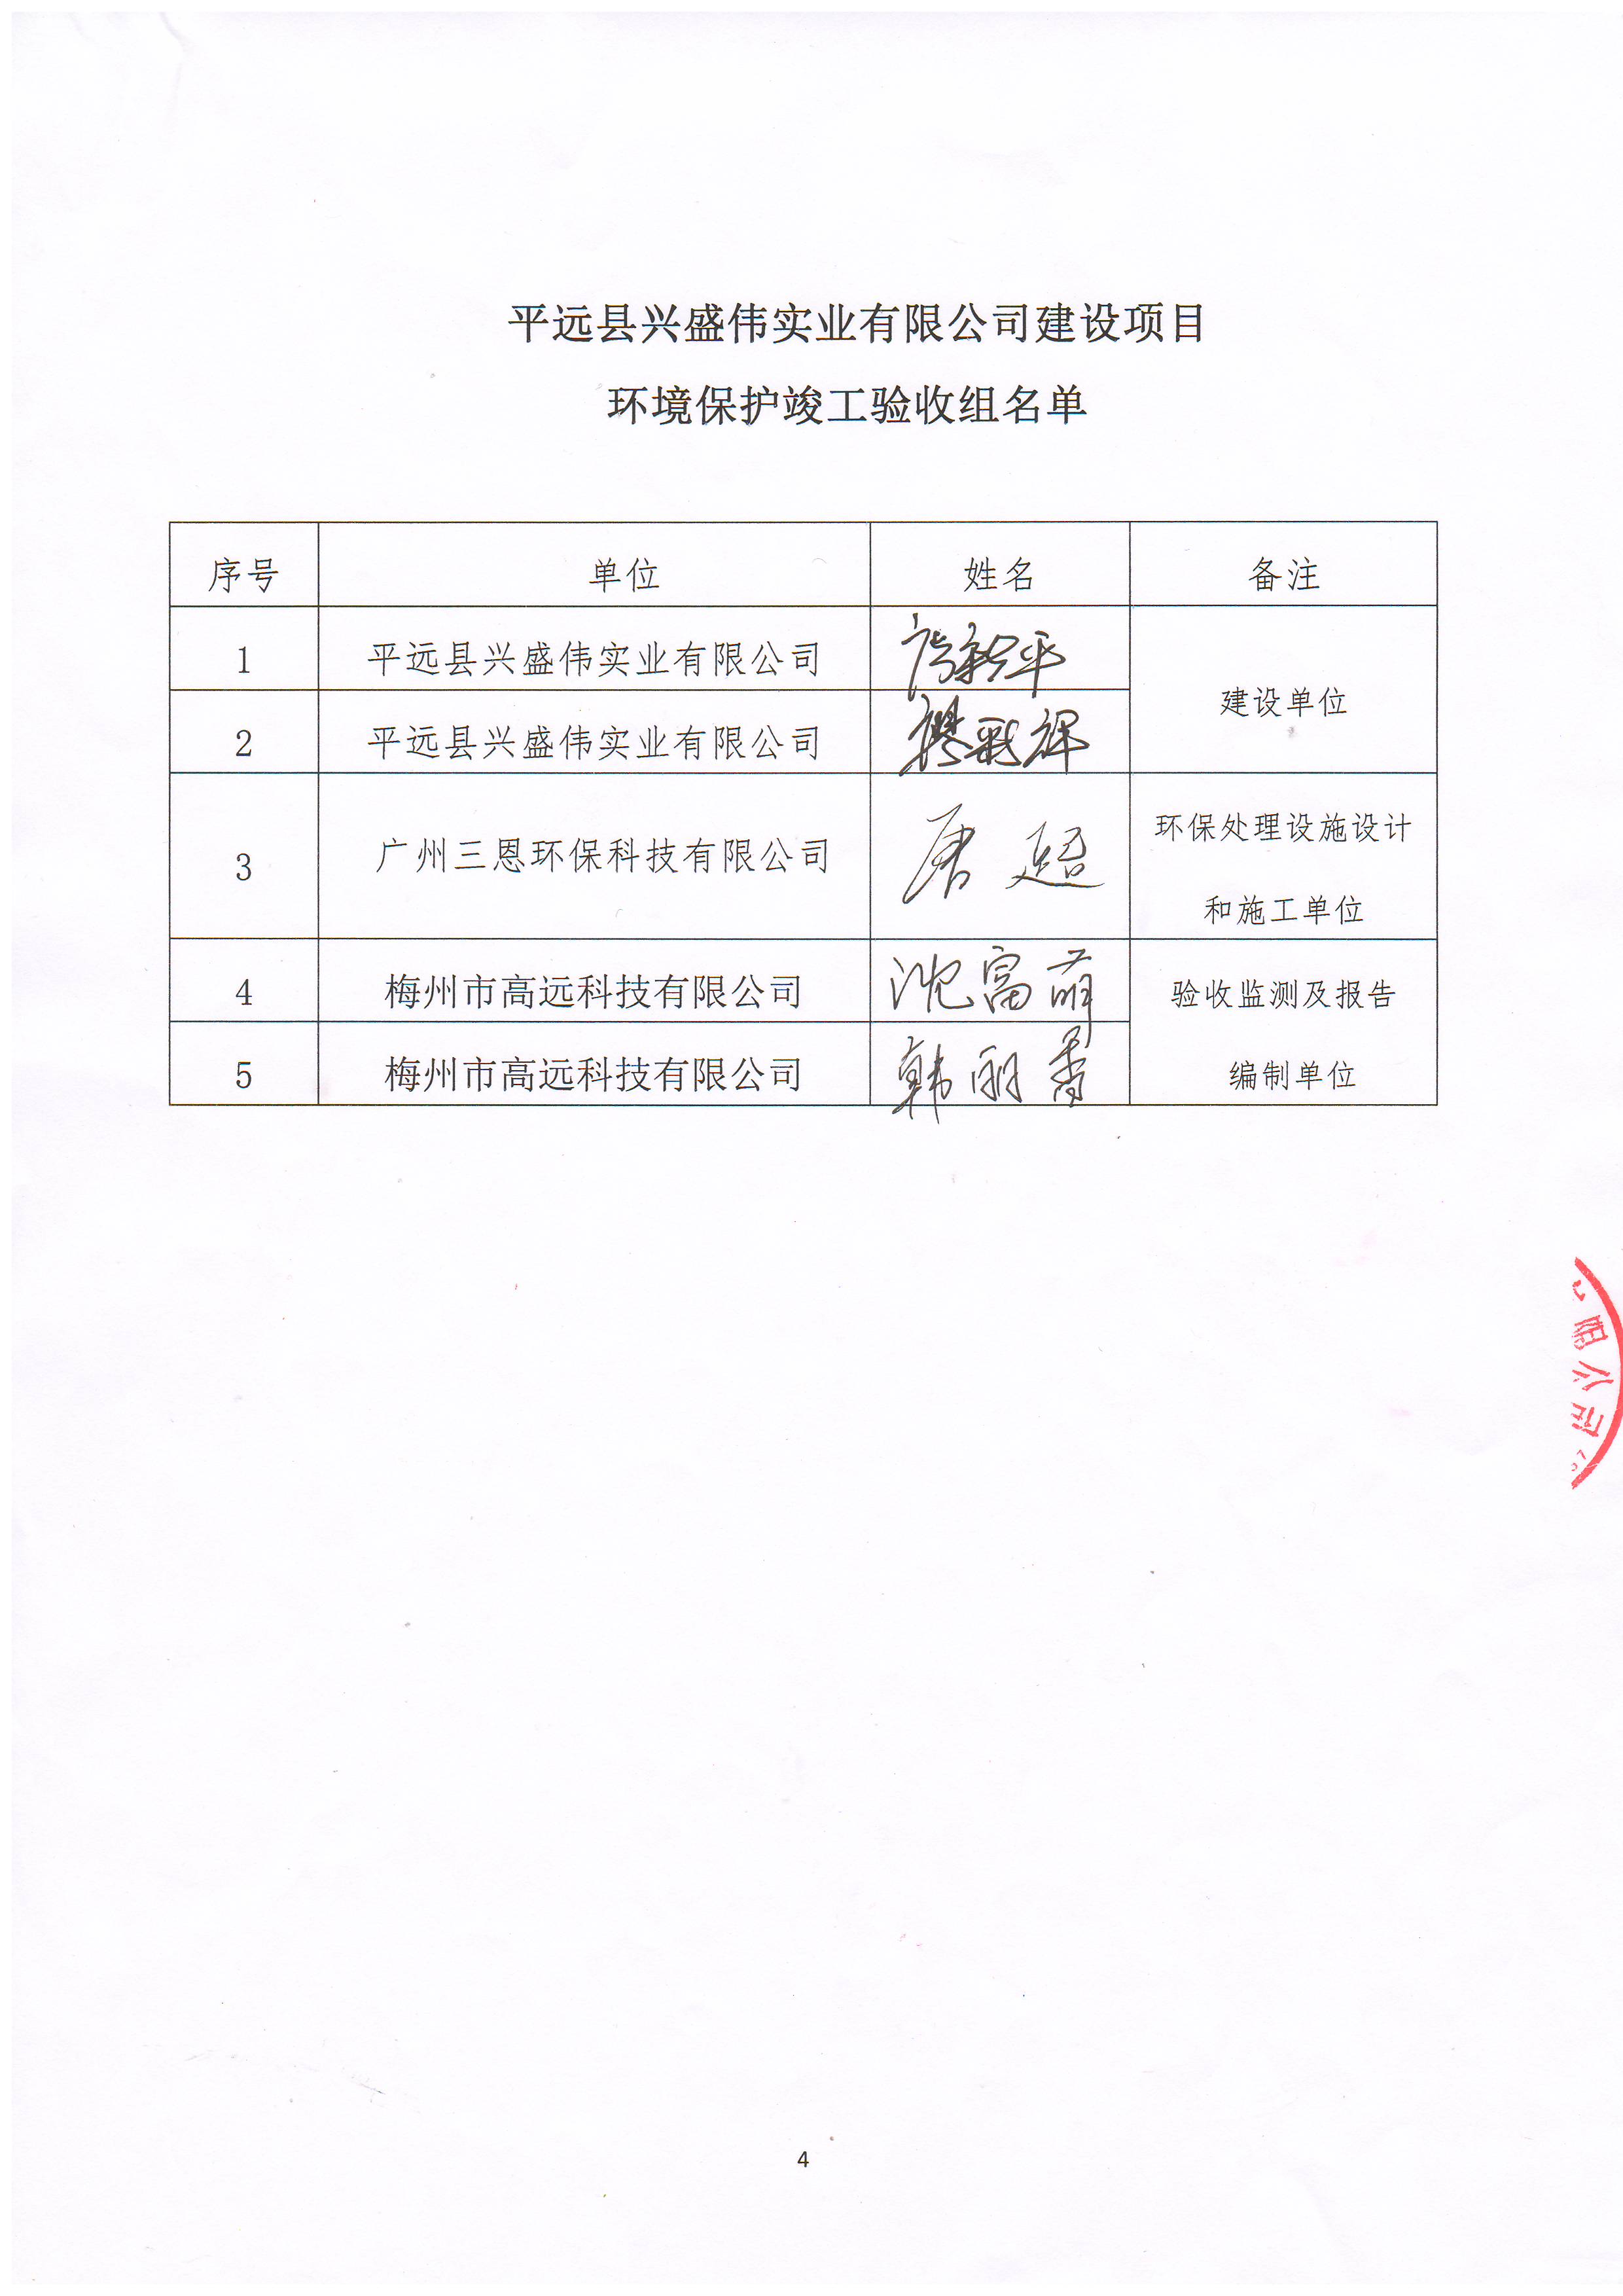 平远县兴盛伟实业有限公司建设项目
环境保护竣工验收组名单
序号 单位 姓名 备注
1 平远县兴盛伟实业有限公司 平 建设单位
2 平远县兴盛伟实业有限公司 樊彩辉
3 广州三恩环保科技有限公司 唐超 环保处理设施设计
和施工单位
4 梅州市高远科技有限公司 沈富萌 验收监测及报告
编制单位
5 梅州市高远科技有限公司 韩丽香
限公司
4